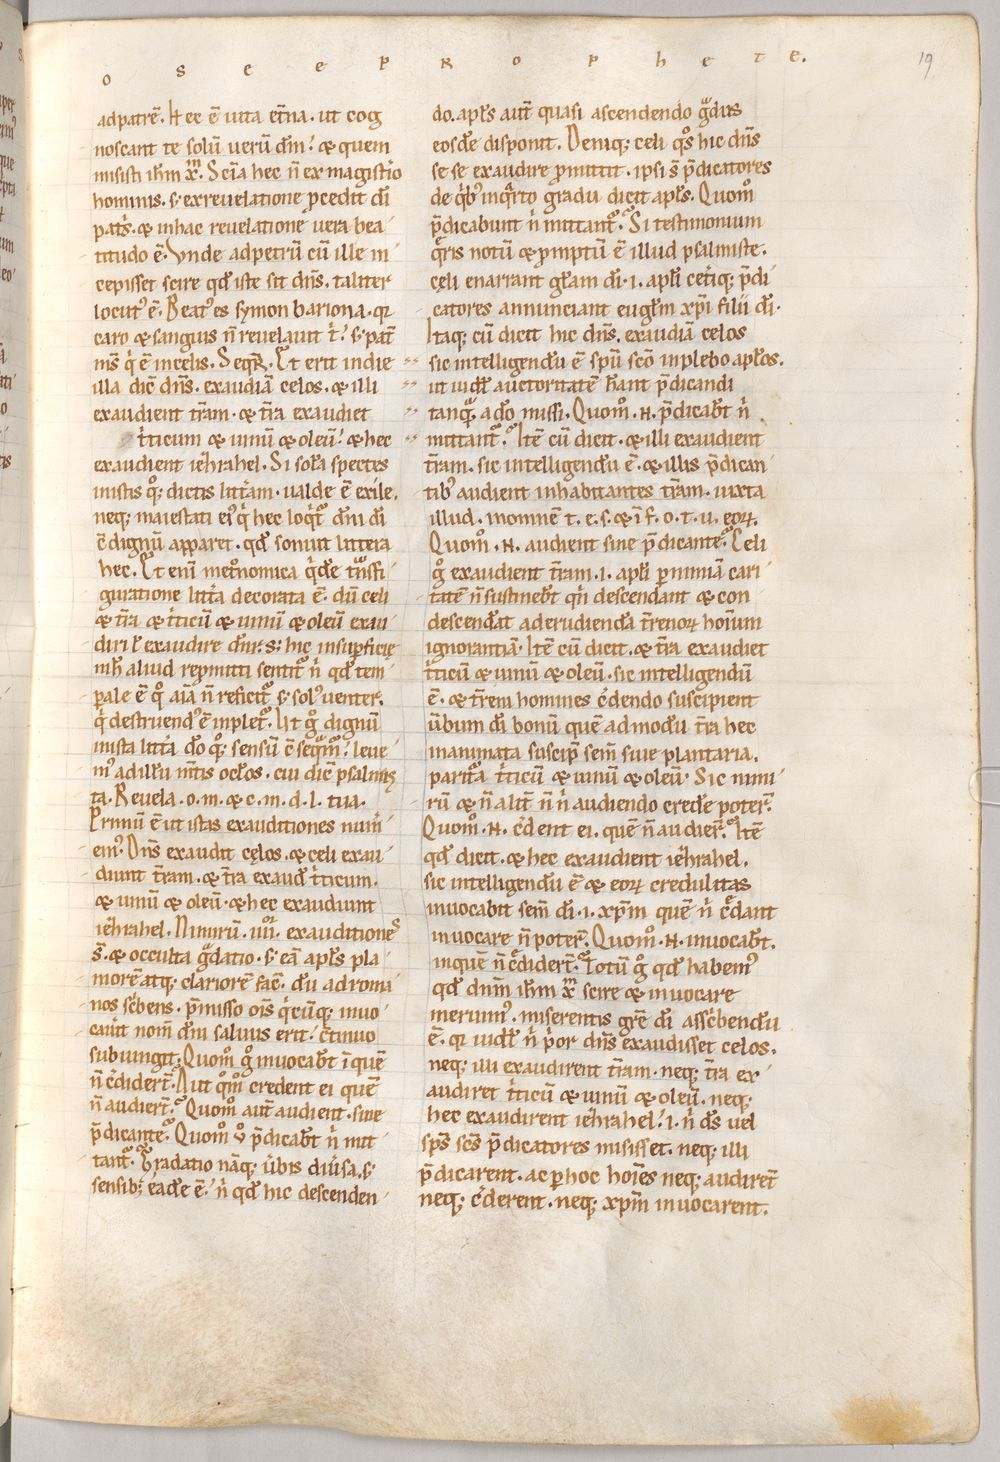 O S E E P R O P H E T E.
19
ad patrē. Hec ē uita et̄na. ut cog
noscant te solū uerū dm̄! & quem
misisti ihm̄ xp̄m. Sciā hec n̄ ex magistio
hominis. s; ex reuelatione ꝓcedit di̅
pat̄s. & in hac reuelatione uera bea
titudo ē. Vnde ad petrū cū ille in
cepisset scire qd̄ iste sit dn̄s. taliter
locut᾽ ē. Beat᾽ es symon bariona. q̄a
caro & sanguis n̄ reuelauit t̄! s; pat̄
m̄s q̄ ē in celis. Seqr̄. Et erit in die
illa dic̄ dn̄s. exaudiā celos. & illi
exaudient t̄ram. & t̄ra exaudiet
t̄ticum & uinū & oleū! & hec
exaudient ieh̄rahel. Si sola spectes
in istis q̄; dictis litt̄am. ualde ē exile.
neq; maiestati ei᾽ q̄ hec loqit̄ dn̄i di̅
ē dignū apparet. qd̄ sonuit littera
hec. Et eni᾽ met̄nomica q̄de tn̄sfi
guratione litt̄a decorata ē. dū celi
& t̄ra & t̄ticū & uinū & oleū exau
diri l̄ exaudire dn̄r. s; hic in suꝑficie
nih̄ aliud reꝓmitti sentit̄ n̄ qd̄ tem
ꝑale ē q̊ aīa n̄ reficit̄ s; sol᾽ uenter.
q̄ destruend᾽ ē inplet̄. Ut g̊ dignū
in ista litt̄a do̅ q̄; sensū ē seqm̄! leue
m᾽ ad illū m̄tis oc̄los. cui dic̄ psalmis
ta. Reuela. o. m. & c. m. d. l. tua.
Primū ē ut istas exauditiones num̄
em᾽. Dn̄s exaudit cęlos. & celi exau
diunt t̄ram. & t̄ra exaud̄ t̄ticum.
& uinū & oleū. & hec exaudiunt
ieh̄rahel. Nimirū. iiiior. exauditiones
s̄. & occulta g̊datio. s; eā apl̄s pla
morē atq; clariorē fac̄. dū ad roma
nos sc̄bens. p̄misso oīs q̄cūq; inuo
cau̅it nom̄ dn̄i saluus erit! c̄tinuo
subiungit. Quom̊ g̊ inuocab̄t ī quē
n̄ c̄didert̄. Aut q̊m̊ credent ei quē
n̄ audiert̄? Quom̊ aut̄ audient. sine
p̄dicante? Quom̊ v̊ p̄dicab̄t n̄ mit
tant̄? Gradatio nāq; u̅bis diu̅sa. s;
sensib; eade ē! n̄ qd̄ hic descenden
do. apl̄s aut̄ quasi ascendendo g̊dus
eosde̅ disponit. Deniq; celi q̊s hic dn̄s
se se exaudire ꝓmittit. ipsi s̄ p̄dicatores
de q̄b᾽ in q̄rto gradu dicit apl̄s. Quom̊
p̄dicabunt n̄ mittant̄? Si testimonium
q̄ris notū & ꝓmptū ē illud psalmiste.
cęli enarrant gl̄am di̅. i. apl̄i cet̄iq; p̄di
catores annunciant eugl̄m xp̄i filii di̅.
Itaq; cū dicit hic dn̄s. exaudiā celos
sic intelligendū ē spū scō inplebo apl̄os.
ut iudl̄ auctoritatē h̄ant p̄dicandi
tanq̄ a do̅ missi. Quom̊. N. p̄dicab̄t n̄
mittant̄? Itē cū dicit. & illi exaudient
t̄ram. sic intelligendū ē. & illis p̄dican
tib᾽ audient inhabitantes t̄ram. iuxta
illud. in omnē t. e. s. & ī f. o. t. u. eoꝝ.
Quom̊. N. audient sine p̄dicante? Celi
g̊ exaudient t̄ram. i. apl̄i ꝑ nimiā cari
tatē n̄ sustineb̄t qn̄ descendant & con
descendāt ad erudienda̅ t̄renoꝝ hom̄um
ignorantiā. Itē cū dicit. & t̄ra exaudiet
t̄ticū & uinū & oleū. sic intelligendū
ē. & t̄rem hommes c̄dendo suscipient
u̅bum di̅ bonū quē ad modū t̄ra hec
inanimata suscip̄ sem̄ siue plantaria.
parit̄a t̄ticū & uinū & oleū. Sic nimi
rū & n̄ alit̄ n̄ n̄ audiendo crede̅ poter̄.
Quom̊. N. c̄dent ei. quē n̄ audier̄? Itē
qd̄ dicit. & hec exaudient ieh̄rahel.
sic intelligendū ē & eoꝝ credulitas
inuocabit sem̄ di̅. i. xp̄m quē n̄ c̄dant
inuocare n̄ poter̄. Quom̊. N. inuocab̄t.
in quē n̄ c̄didert̄? Totū g̊ qd̄ habem᾽
qd̄ dnm̄ ihm̄ xp̄m scire & inuocare
merum᾽. miserentis gr̄e di̅ assc̄bendū
ē. q̄ iudl̄ n̄ p̄or dn̄s exaudisset celos.
neq; illi exaudirent t̄ram. neq; t̄ra ex
audiret t̄ticū & uinū & oleū. neq;
hec exaudirent ieh̄rahel! i. n̄ ds̄ uel
sp̄s sc̄s p̄dicatores misisset. neq; illi
p̄dicarent. ac ꝑ hoc hoīes neq; audiret̄
neq; c̄derent. neq; xp̄m inuocarent.